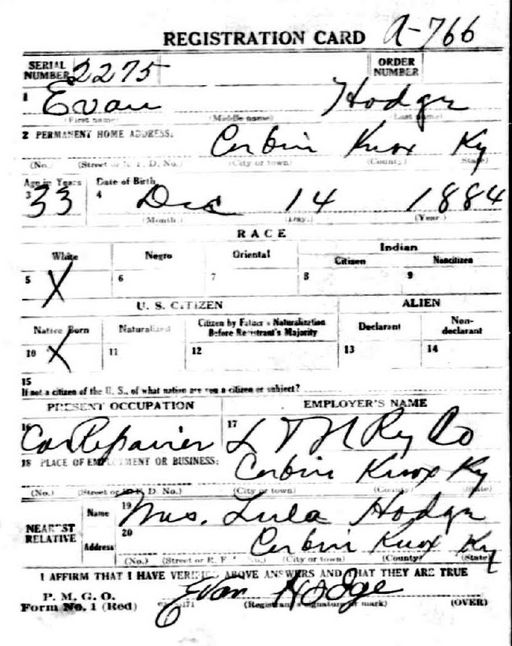 REGISTRATION CARD A-766
SERIAL NUMBER 2275 ORDER NUMBER
1 Evan Hodge
(First name) (Middle name) (Last name)
2 PERMANENT HOME ADDRESS: Corbin Knox Ky
(No.) (Street or R. F. D. No.) (City or town) (County) (State)
Age in Years Date of Birth
3 33 4 Dec 14 1884
(Month.) (Day.) (Year.)
RACE
White Negro Oriental Indian
Citizen Noncitizen
5 X 6 7 8 9
U. S. CITIZEN ALIEN
Native Born Naturalized Citizen by Father's Naturalization Before Registrant's Majority Declarant Non-declarant
10 X 11 12 13 14
15
If not a citizen of the U. S., of what nation are you a citizen or subject?
PRESENT OCCUPATION EMPLOYER'S NAME
16 Car Repairer 17 L & N Ry Co
18 PLACE OF EMPLOYMENT OR BUSINESS: Corbin Knox Ky
(No.) (Street or R. F. D. No.) (City or town) (County) (State)
NEAREST RELATIVE
Name 19 Mrs. Lula Hodge
Address 20 Corbin Knox Ky
(No.) (Street or R. F. (City or town) (County) (State)
I AFFIRM THAT I HAVE VERIFIED ABOVE ANSWERS AND THAT THEY ARE TRUE
P. M. G. O.
Form No. 1 (Red) Evan Hodge
(Registrant's signature or mark) (OVER)